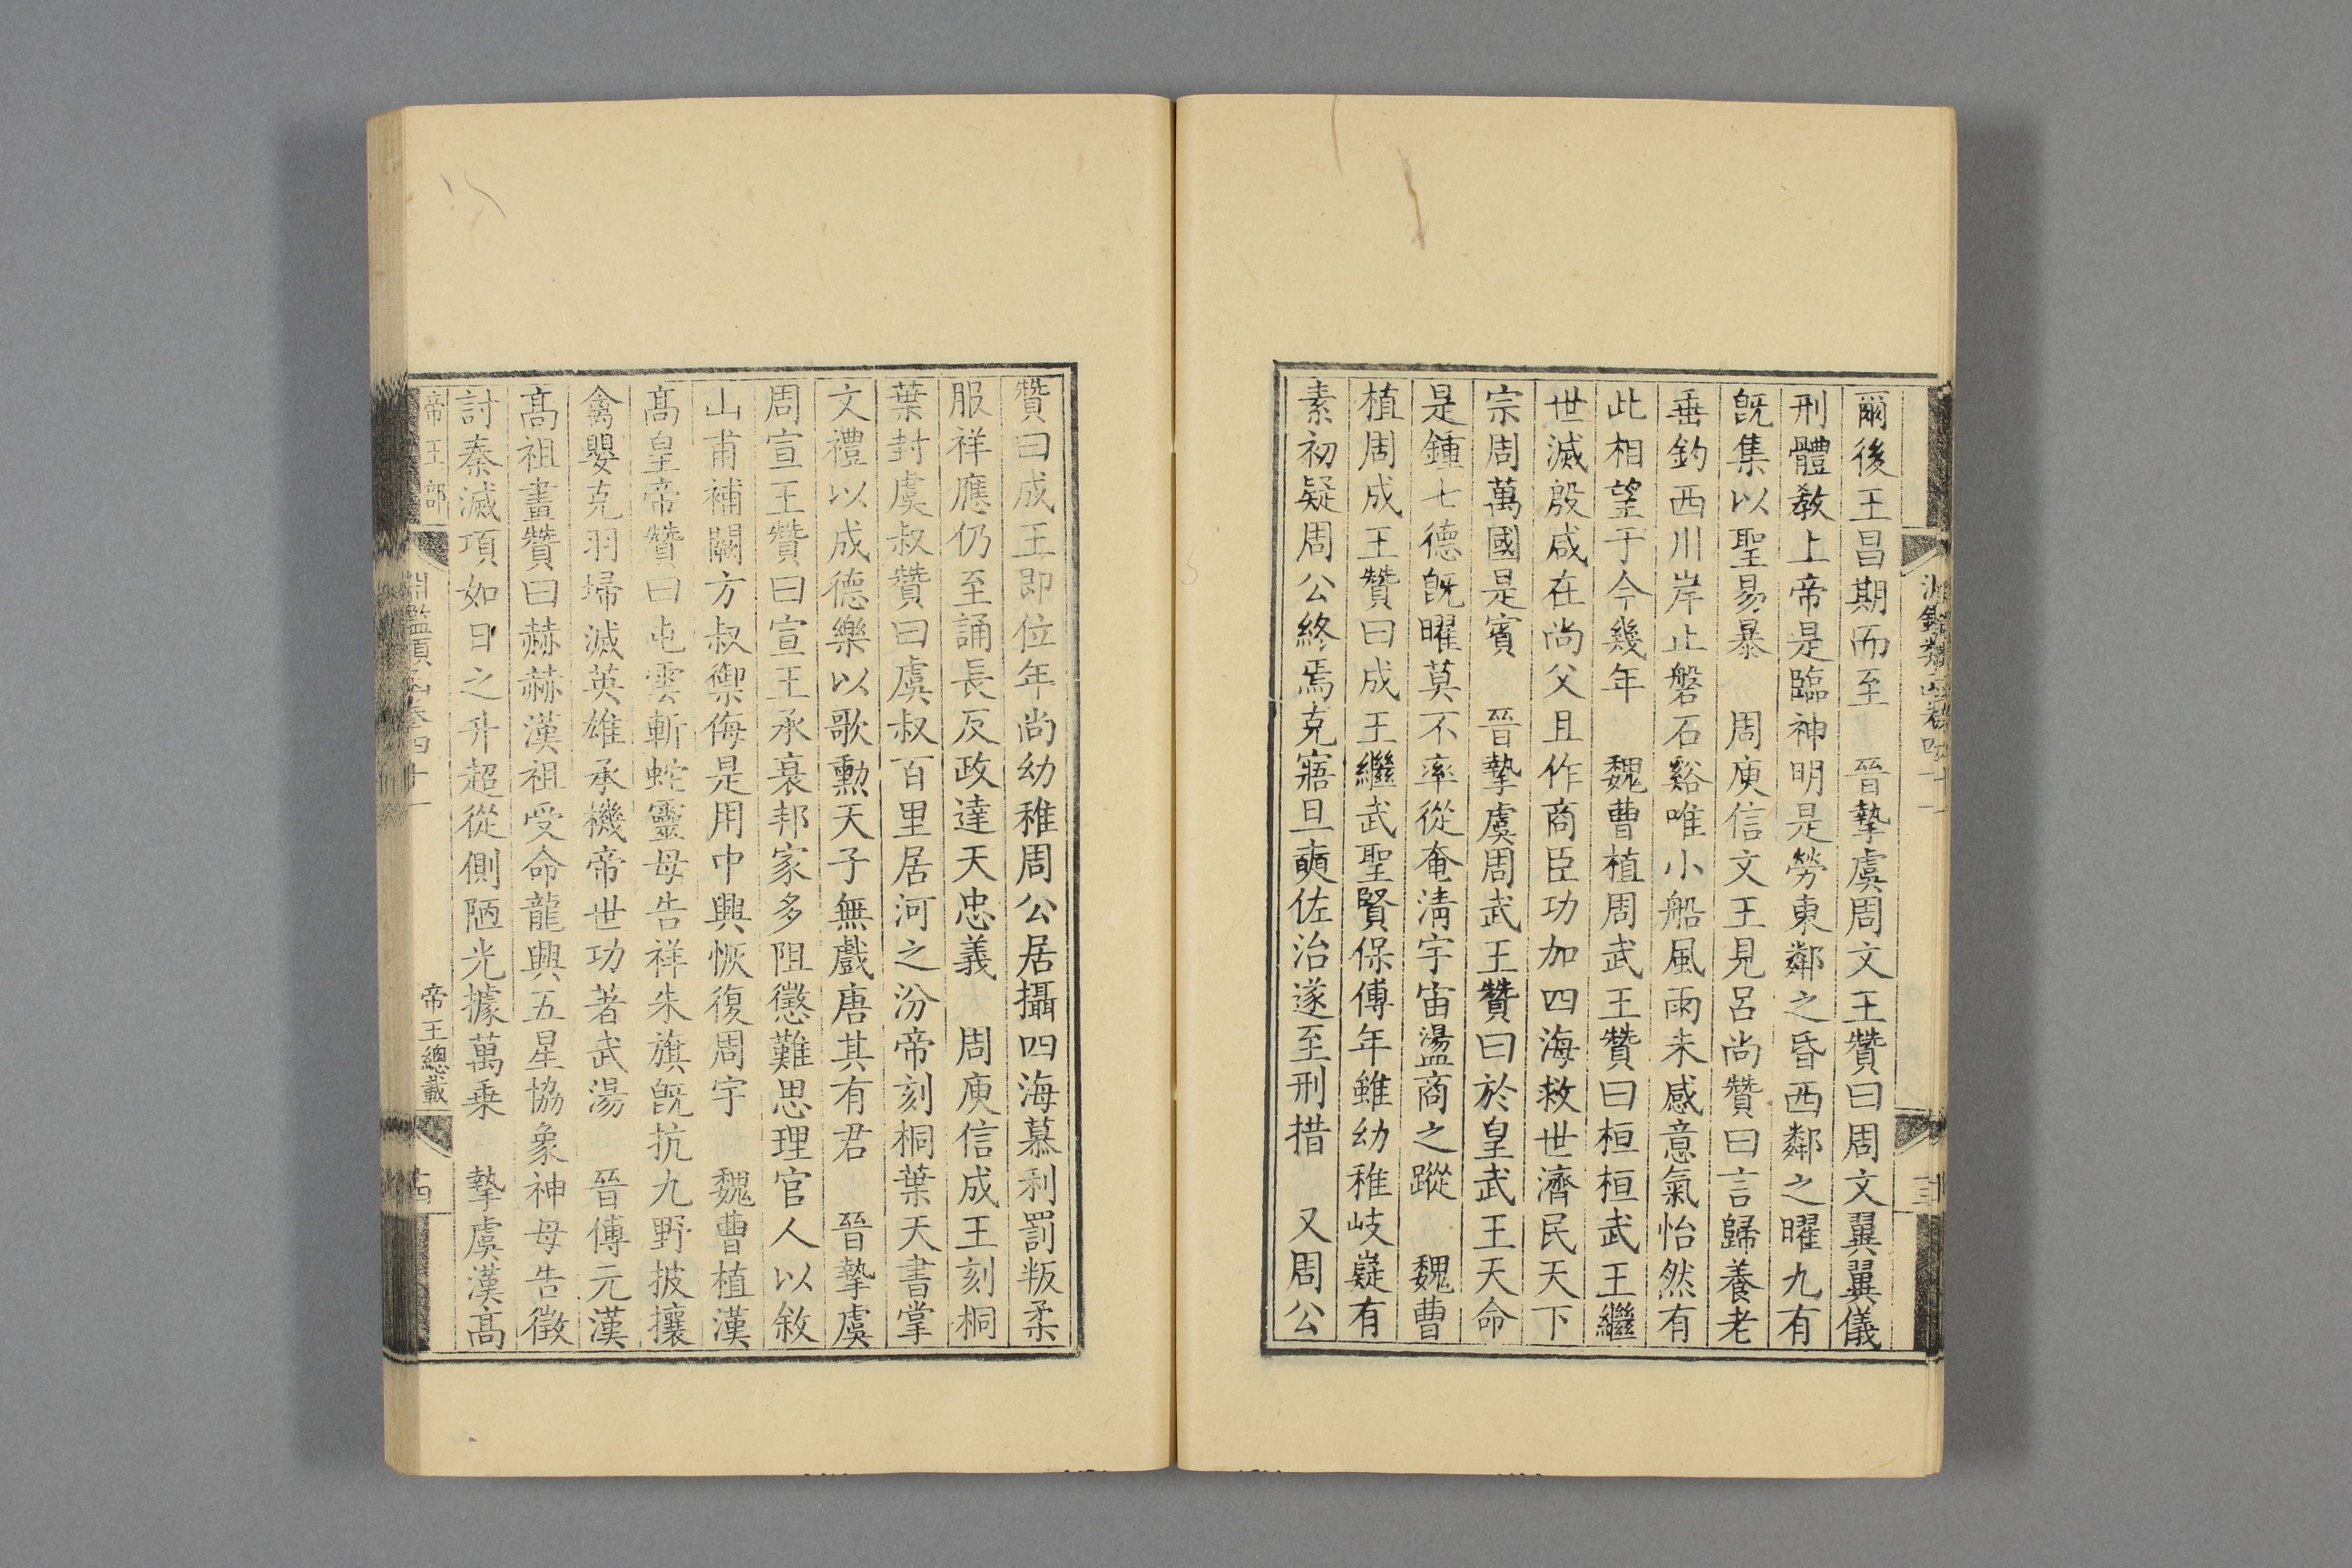 爾後王昌期而至　晉摯虞周文王贊曰周文翼翼儀
刑體教上帝是臨神明是勞東鄰之昏西鄰之曜九有
旣集以聖易暴　周庾信文王見呂尚贊曰言歸養老
垂釣西川岸止磐石谿唯小船風雨未感意氣怡然有
此相望于今幾年　魏曹植周武王贊曰桓桓武王繼
世滅殷咸在尚父且作商臣功加四海救世濟民天下
宗周萬國是賓　晉摯虞周武王贊曰於皇武王天命
是鍾七德旣曜莫不率從奄淸宇宙盪商之蹤　魏曹
植周成王贊曰成王繼武聖賢保傅年雖幼稚岐嶷有
素初疑周公終焉克寤旦奭佐治遂至刑措　又周公
贊曰成王即位年尚幼稚周公居攝四海慕利罰叛柔
服祥應仍至誦長反政達天忠義　周庾信成王刻桐
葉封虞叔贊曰虞叔百里居河之汾帝刻桐葉天書掌
文禮以成德樂以歌勲天子無戲唐其有君　晉摯虞
周宣王贊曰宣王承衰邦家多阻懲難思理官人以敘
山甫補闕方叔禦侮是用中興恢復周宇　魏曹植漢
高皇帝贊曰屯雲斬蛇靈母告祥朱旗旣抗九野披攘
禽嬰克羽掃滅英雄承機帝世功著武湯　晉傅元漢
高祖畫贊曰赫赫漢祖受命龍興五星協象神母告徵
討秦滅項如日之升超從側陋光據萬乗　摯虞漢高
帝王部
淵鑑類函卷四十一
帝王總載